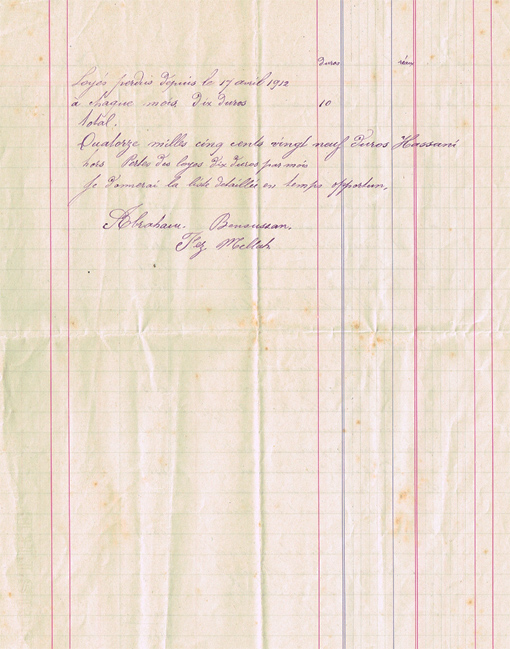 duros réaux
Loyés perdus depuis le 17 avril 1912
a chaque mois dix duros 10
total.
Quatorze milles cinq cents vingt neuf Duros Hassani
hors Pertes des loyes dix duros par mois
je donnerai la liste detaillée en temps opportun.
Abraham. Benoussan.
Fez Mellah